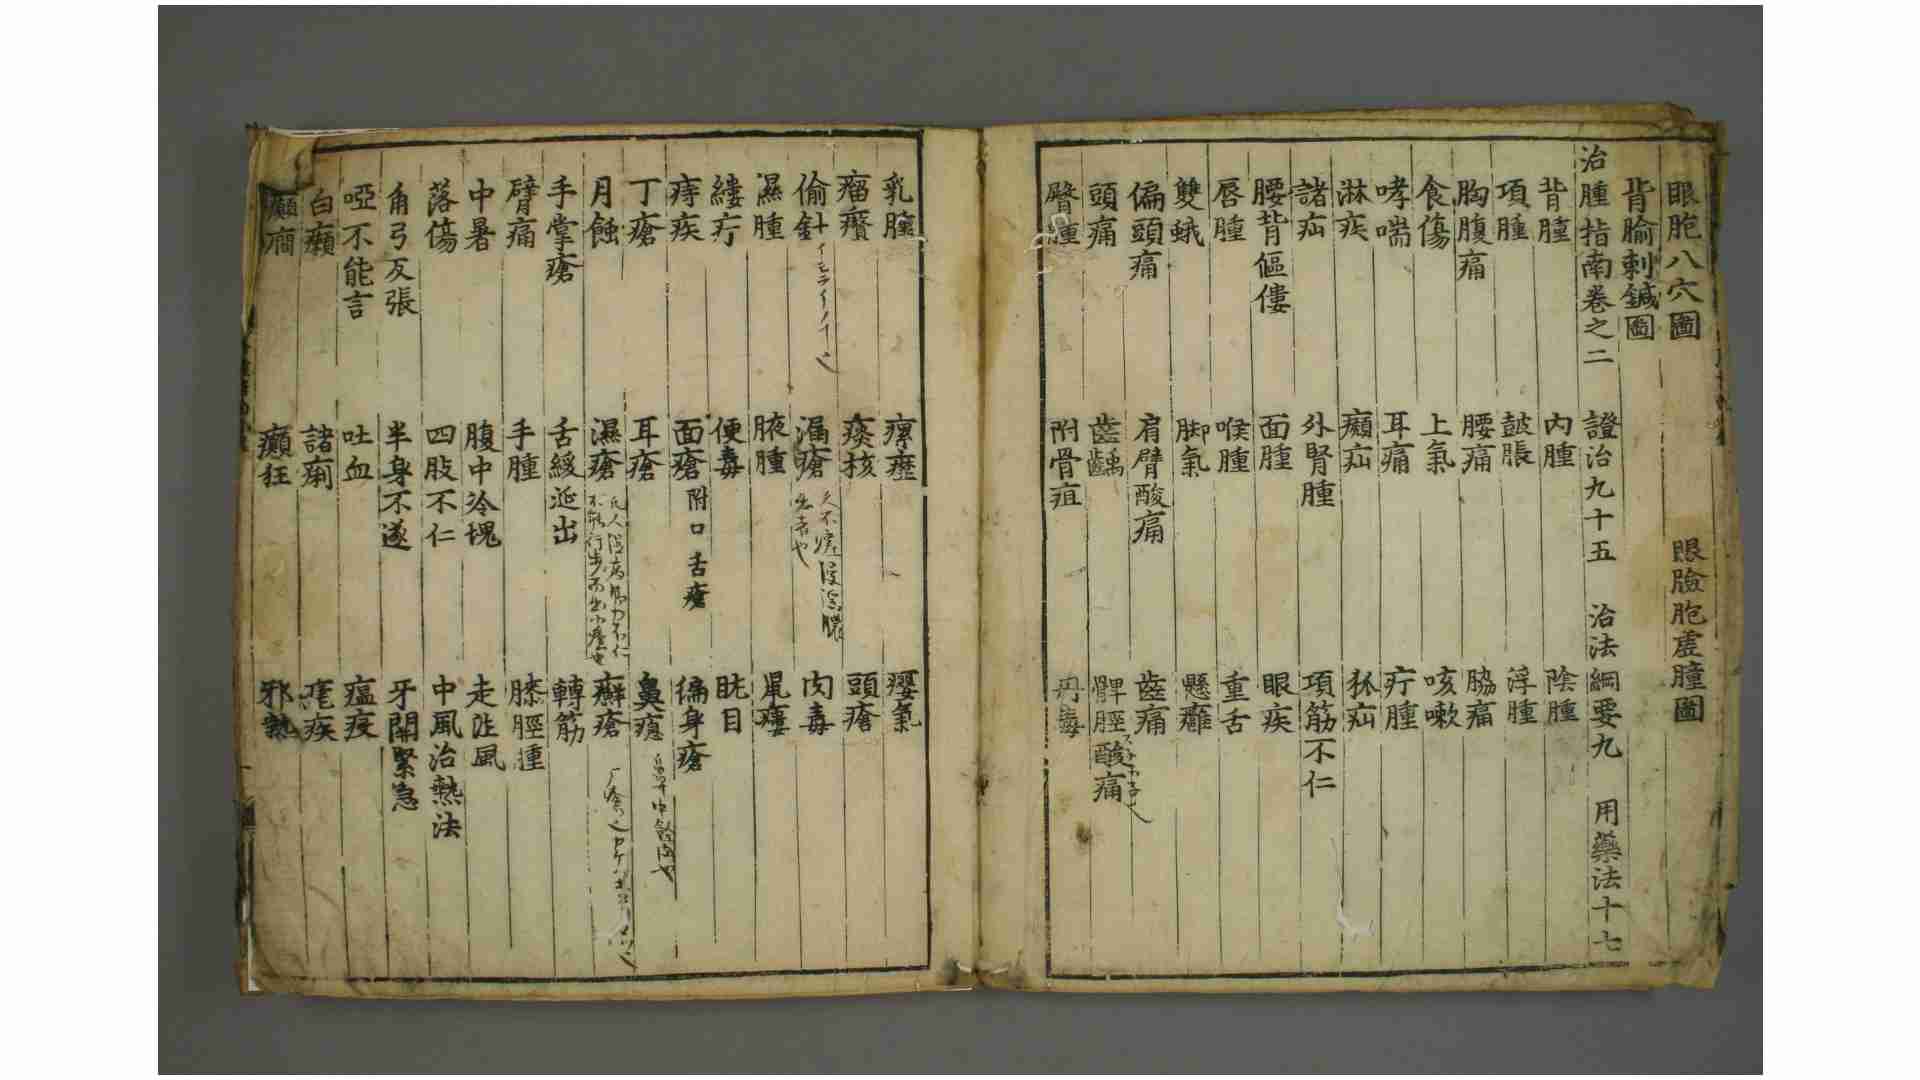 眼胞八穴圖 眼臉胞虛腫圖
背腧刺鍼圖
治腫指南卷之二 證治九十五 治法綱要九 用藥法十七
背腫 內腫 陰腫
項腫 皷脹 浮腫
胸腹痛 腰痛 脇痛
食傷 上氣 咳嗽
哮喘 耳痛 疔腫
淋疾 㿗疝 狐疝
諸疝 外腎腫 項筋不仁
腰背傴僂 面腫 眼疾
唇腫 喉腫 重舌
雙蛾 脚氣 懸癰
偏頭痛 肩臂酸痛 齒痛
頭痛 齒齲 髀脛酸痛
臀腫 附骨疽 丹毒
乳腫 瘰癧 癭氣
瘤癭 痰核 頭瘡
偷針 漏瘡 久不 膿 也 肉毒
濕腫 腋腫 鼠瘻
縷疔 便毒 眈目
痔疾 面瘡 附口舌瘡 徧身瘡
丁瘡 耳瘡 鼻瘜 中 也
月蝕 濕瘡 癬瘡
手掌瘡 舌緩涎出 轉筋
臂痛 手腫 膝脛腫
中暑 腹中冷塊 走注風
落傷 四肢不仁 中風治熱法
角弓反張 半身不遂 牙關緊急
啞不能言 吐血 瘟疫
白癩 諸痢 瘧疾
癲癎 癲狂 邪熱